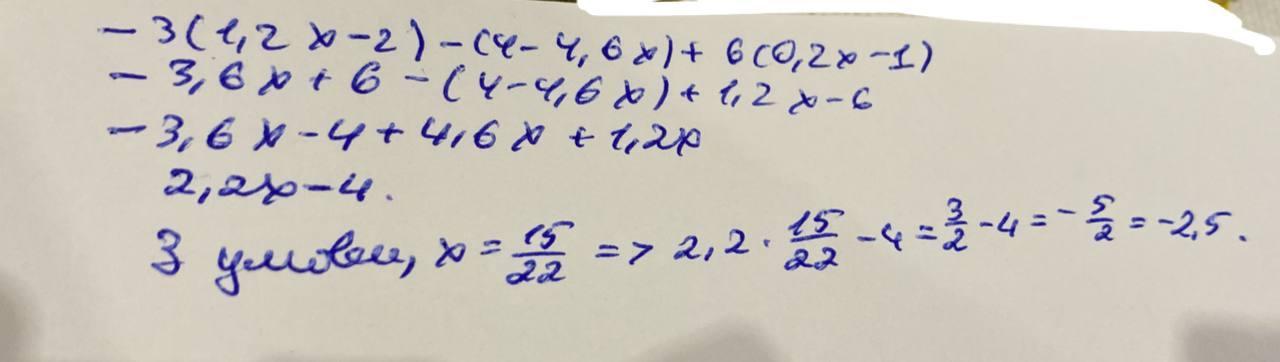 - 3(1,2x-2)-(4-4,6x)+6(0,2x-1)
- 3,6x+6-(4-4,6x)+1,2x-6
- 3,6x-4+4,6x+1,2x
2,2x-4.
З умови, x = 15/22 => 2,2 · 15/22 - 4 = 3/2 - 4 = - 5/2 = -2,5.